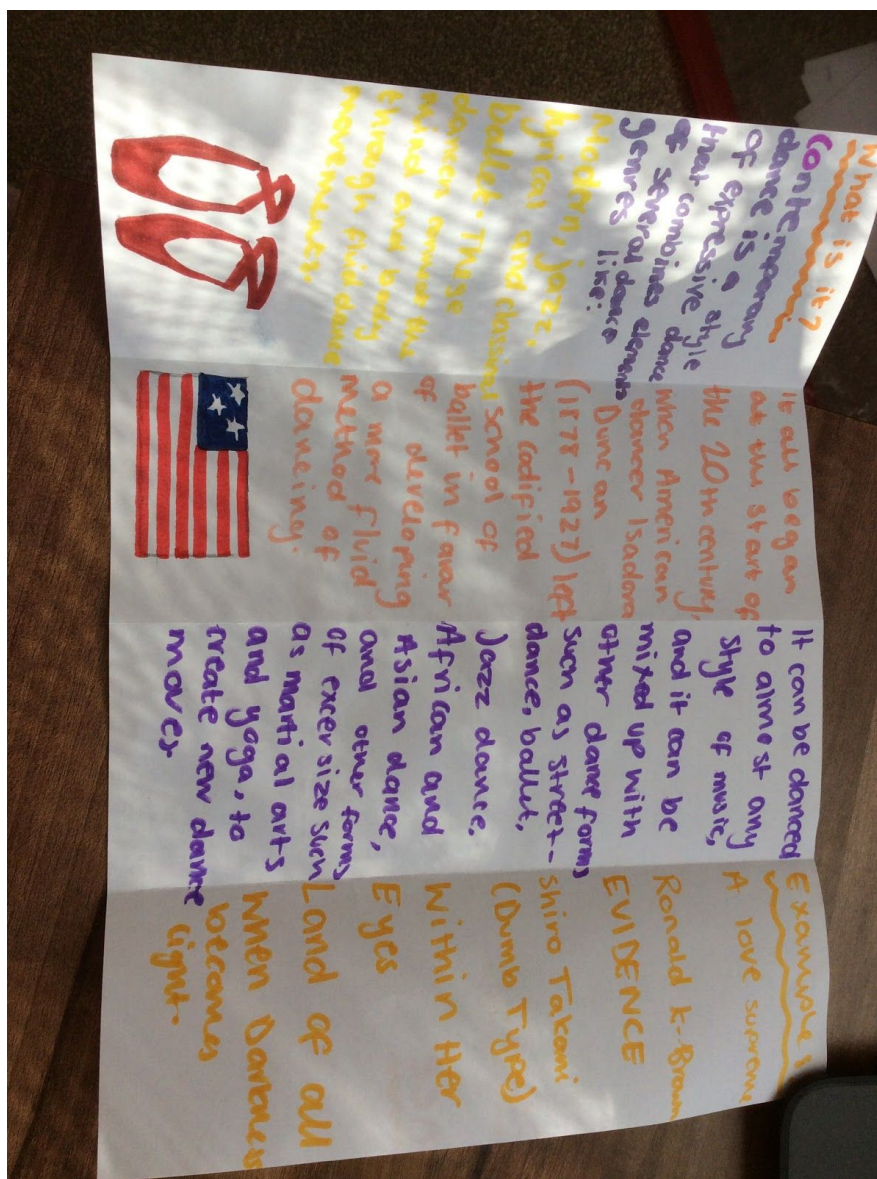 What is it?
Contemporary
dance is a style
of expressive dance
that combines elements
of several dance
genres like:
Modern, jazz,
lyrical and classical
ballet. These
dances connect the
mind and body
through fluid dance
movements.
It all began
at the start of
the 20th century,
when American
dancer Isadora
Duncan
(1878-1927) left
the codified
school of
ballet in favor
of developing
a more fluid
method of
dancing.
It can be danced
to almost any
style of music,
and it can be
mixed up with
other dance forms
such as street-
dance, ballet,
jazz dance,
African and
Asian dance,
and other forms
of excersize such
as martial arts
and yoga, to
create new dance
moves.
Examples
A love supreme
Ronald K-Brown
EVIDENCE
Shiro Takami
(Dumb Type)
Within Her
Eyes
Land of all
When Darkness
becomes
light.